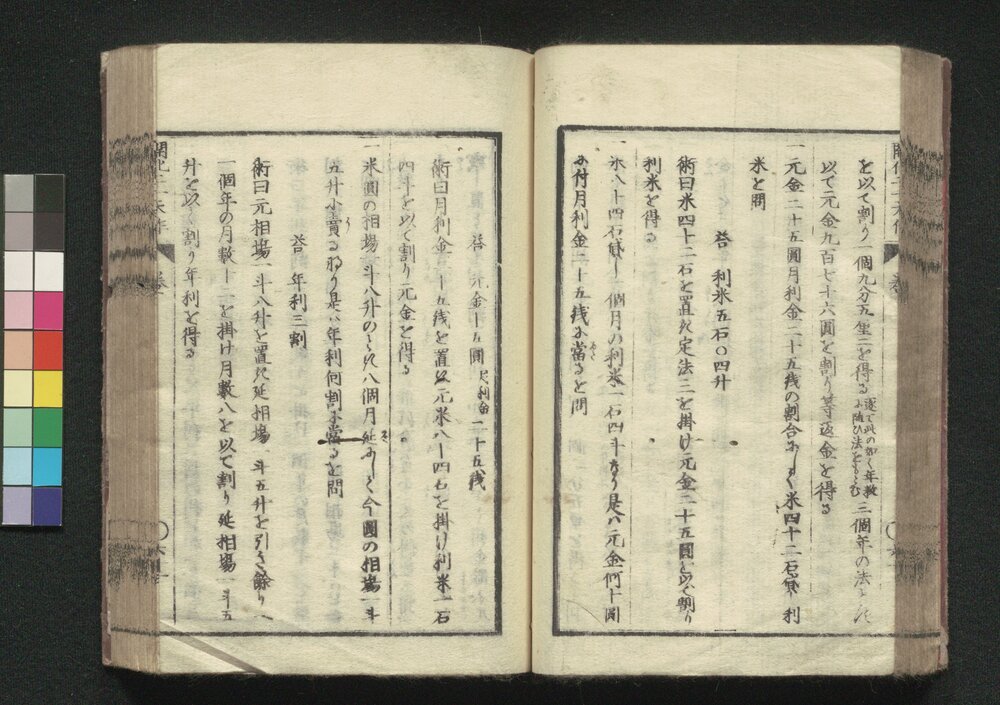 を以て割り一個九分五里二を得る逐て此の如く年数に随ひ法をもとむ三個年の法と
以て元金九百七十六圓を割り等返金を得る
一元金二十五圓月利金二十五銭の割合にして米四十二石貸し利
米を問
答 利米五石〇四升
術曰米四十二石を置き定法三を掛け元金二十五圓を以て割り
利米を得る
一米八十四石貸し一個月の利米一石四斗なり是は元金何十圓
に付月利金二十五銭に當るを問
答 元金十五圓 月利金二十五銭
術曰月利金二十五銭を置き元米八十四石を掛け利米一石
四斗を以て割り元金を得る
一米圓の相場一斗八升のとき八個月延にして今圓の相場一斗
五升に賣る
なり是は年利何割に當るを問
答 年利三割
術曰元相場一斗八升を置き延相場一斗五升を引き餘り
一個年の月数十二を掛け月数八を以て割り延相場一斗五
升を以て割り年利を得る